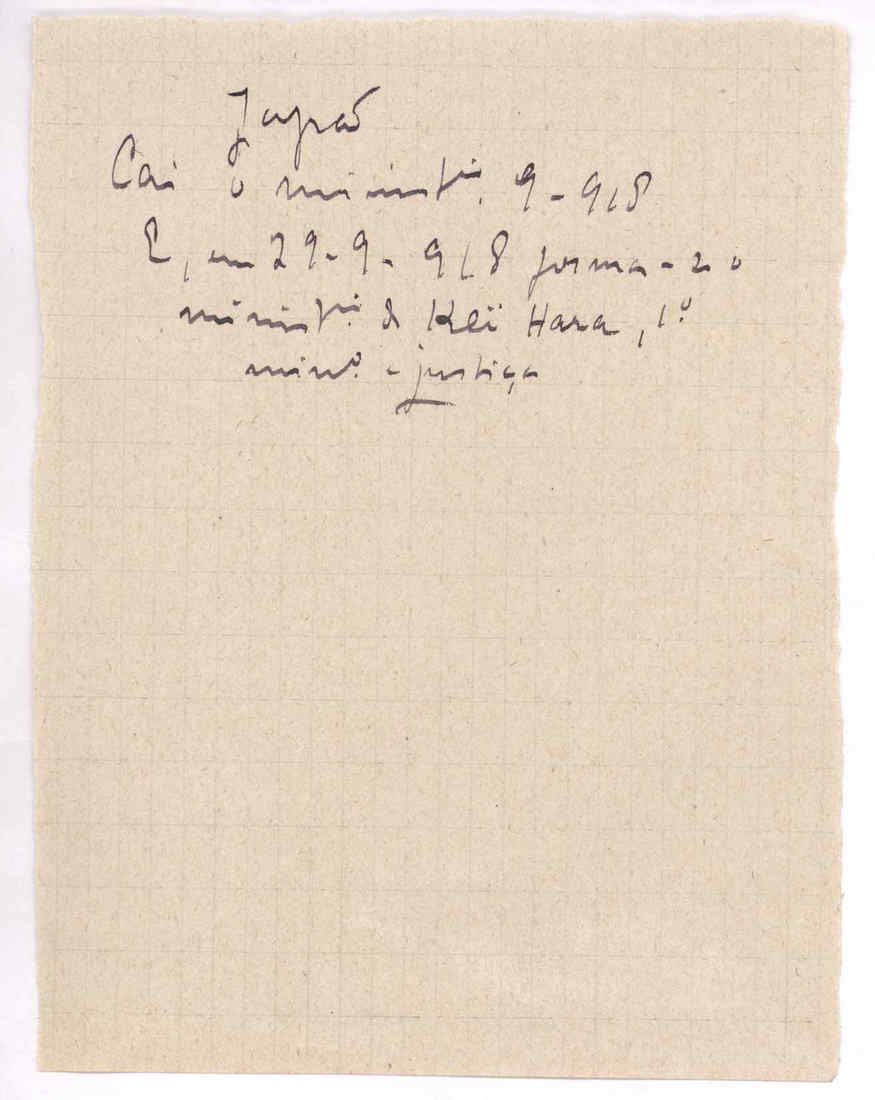 Japão
Cai o ministri. 9-918
E, em 29-9-918 forma-se o
ministri. de Kei Hara, 1.º
minº. e justiça